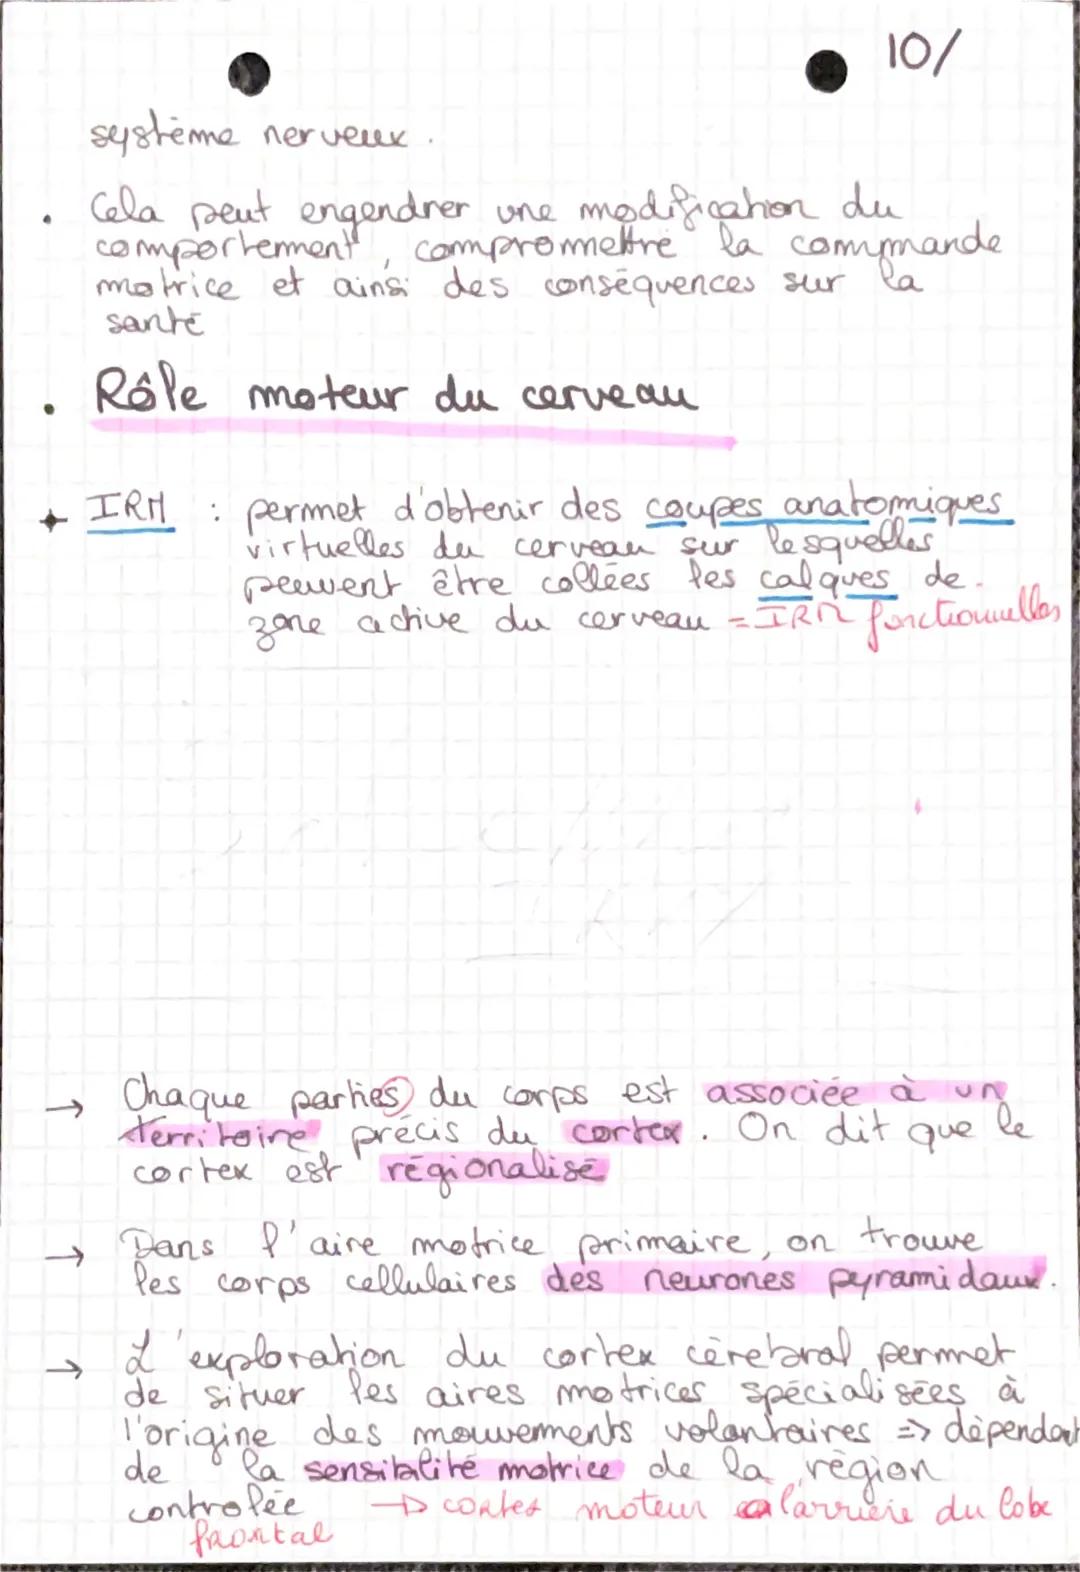 10/
système nerveux.
• Cela peut engendrer une modification du
comportement, compromettre la commande
motrice et ainsi des conséquences sur la
santé
• Rôle moteur du cerveau
IRM : permet d'obtenir des coupes anatomiques
virtuelles du cerveau sur lesquelles
peuvent être collées les calques de
zone active du cerveau = IRM fonctionnelles
→ Chaque parties du corps est associée à un
territoire précis du cortex. On dit que le
cortex est régionalisé
→ Dans l'aire motrice primaire, on trouve
les corps cellulaires des neurones pyramidaux.
→ L'exploration du cortex cérébral permet
de situer les aires motrices spécialisées à
l'origine des mouvements volontaires => dépendant
de la sensibilité motrice de la région
controlée → cortex moteur à l'arrière du lobe
frontal